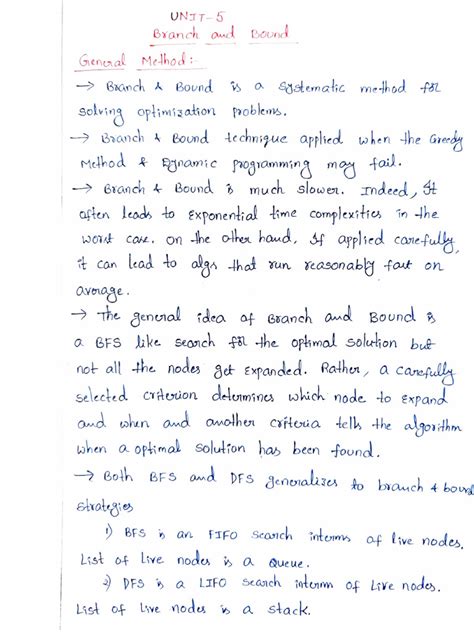 UNIT-5
Branch and Bound
General Method:-
→ Branch & Bound is a systematic method for
solving optimization problems.
→ Branch & Bound technique applied when the Greedy
Method & Dynamic programming may fail.
→ Branch & Bound is much slower. Indeed, It
often leads to Exponential time complexities in the
worst case. on the other hand, If applied carefully,
it can lead to algs that run reasonably fast on
average.
→ The general idea of Branch and Bound is
a BFS like search for the optimal solution but
not all the nodes get Expanded. Rather, a carefully
selected criterion determines which node to Expand
and when and another criteria tells the algorithm
when a optimal solution has been found.
→ Both BFS and DFS generalizes to branch & bound
strategies
1) BFS is an FIFO search interms of live nodes.
List of live nodes is a queue.
2) DFS is a LIFO search interm of Live nodes.
List of Live nodes is a stack.